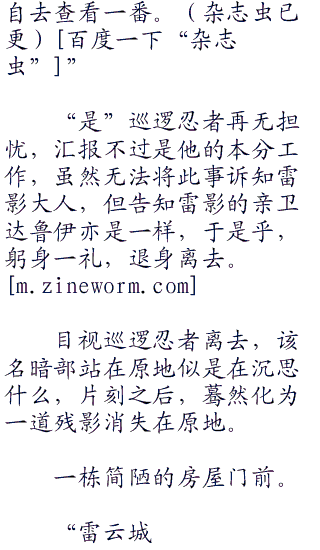 自去查看一番。（杂志虫已
更）[百度一下“杂志
虫”]”
“是”巡逻忍者再无担
忧，汇报不过是他的本分工
作，虽然无法将此事诉知雷
影大人，但告知雷影的亲卫
达鲁伊亦是一样，于是乎，
躬身一礼，退身离去。
[m.zineworm.com]
目视巡逻忍者离去，该
名暗部站在原地似是在沉思
什么，片刻之后，蓦然化为
一道残影消失在原地。
一栋简陋的房屋门前。
“雷云城